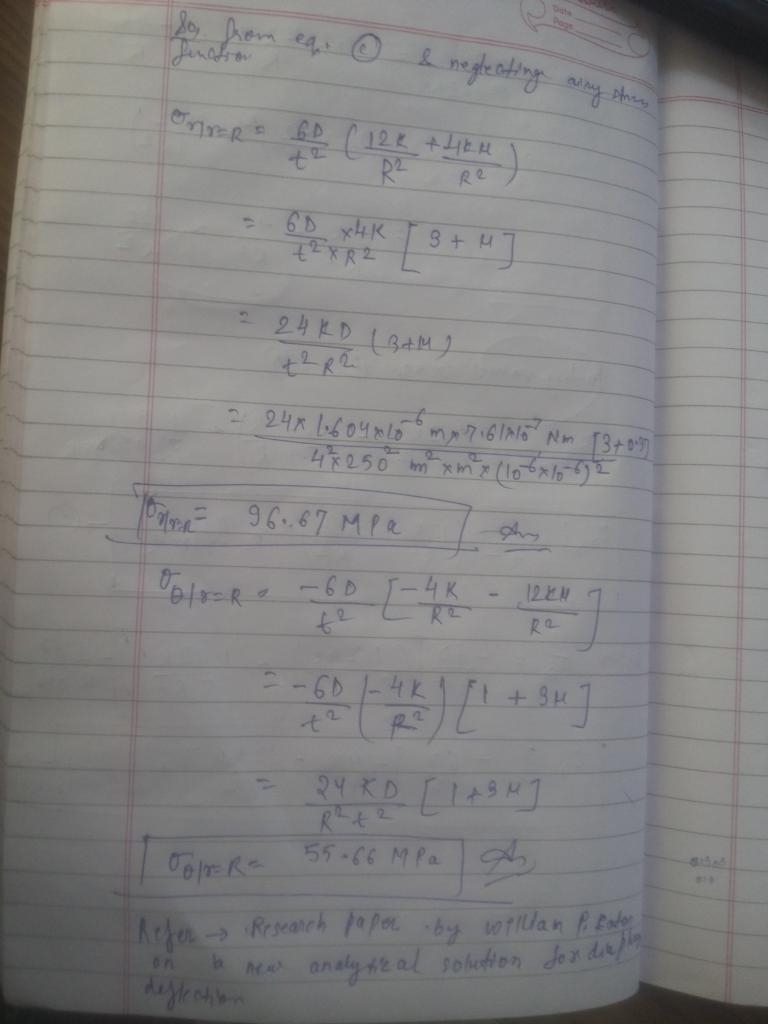 Date
Page
So, from eq. (c) & neglecting airy stress
function
σr|r=R = 6D/t² (12K/R² + 4KM/R²)
= 6D/t²×R² ×4K [3 + M]
= 24KD/t²R² (3+M)
= 24×1.604×10⁻⁶ m×7.61×10⁻⁷ Nm [3+0.3]/4²×250² m²×m²×(10⁻⁶×10⁻⁶)²
σr|r=R = 96.67 MPa Ans
σθ|r=R = -6D/t² [-4K/R² - 12KM/R²]
= -6D/t² (-4K/R²) [1 + 3M]
= 24KD/R²t² [1+3M]
σθ|r=R = 55.66 MPa Ans
Refer → Research paper by William P.
on a new analytical solution for diaphragm
deflection